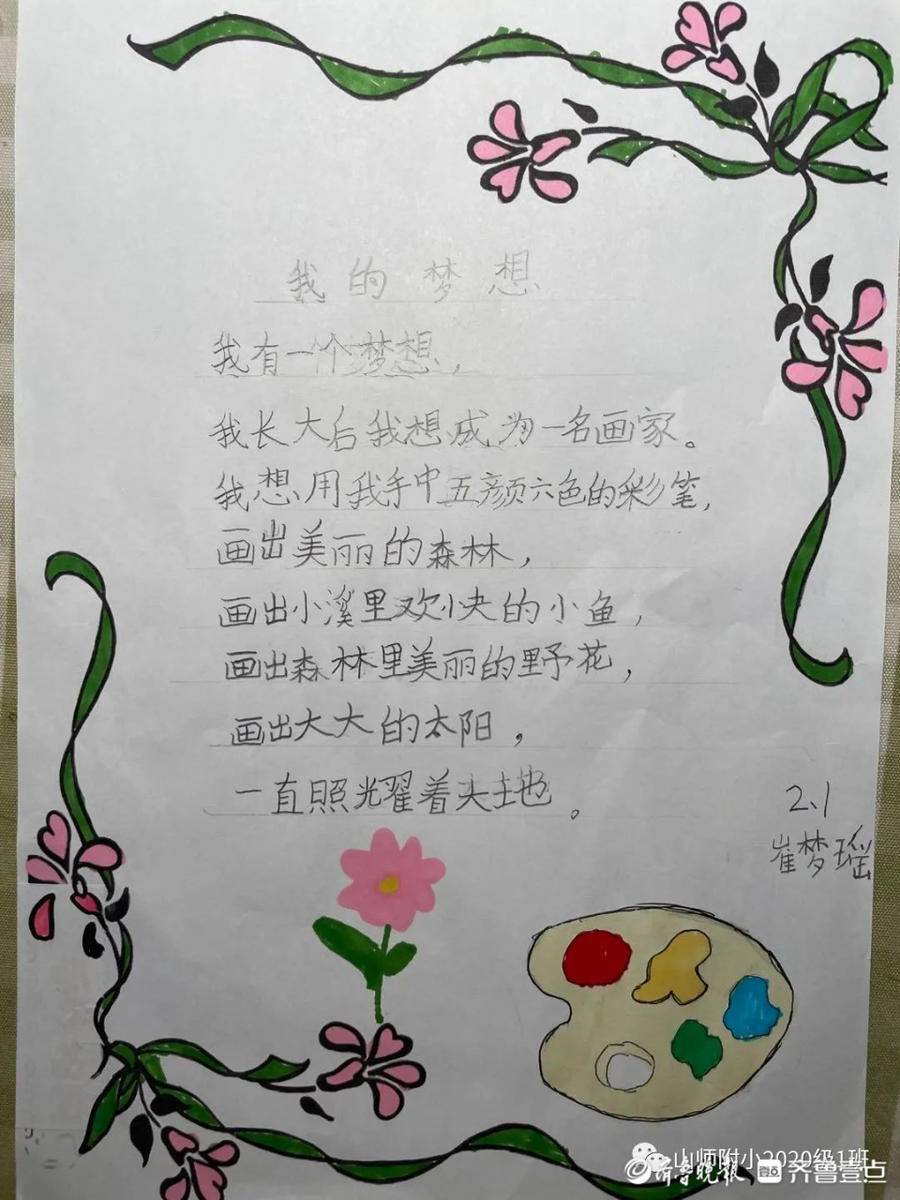 我的梦想
我有一个梦想，
我长大后我想成为一名画家。
我想用我手中五颜六色的彩笔，
画出美丽的森林，
画出小溪里欢快的小鱼，
画出森林里美丽的野花，
画出大大的太阳，
一直照耀着大地。
2、1
崔梦瑶
山师附小2020级1班
齐鲁晚报 齐鲁壹点